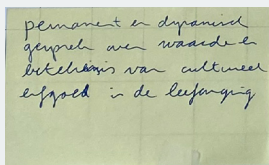 permanent en dynamisch
gesprek over waarde en
betekenis van cultureel
erfgoed in de leefomgeving